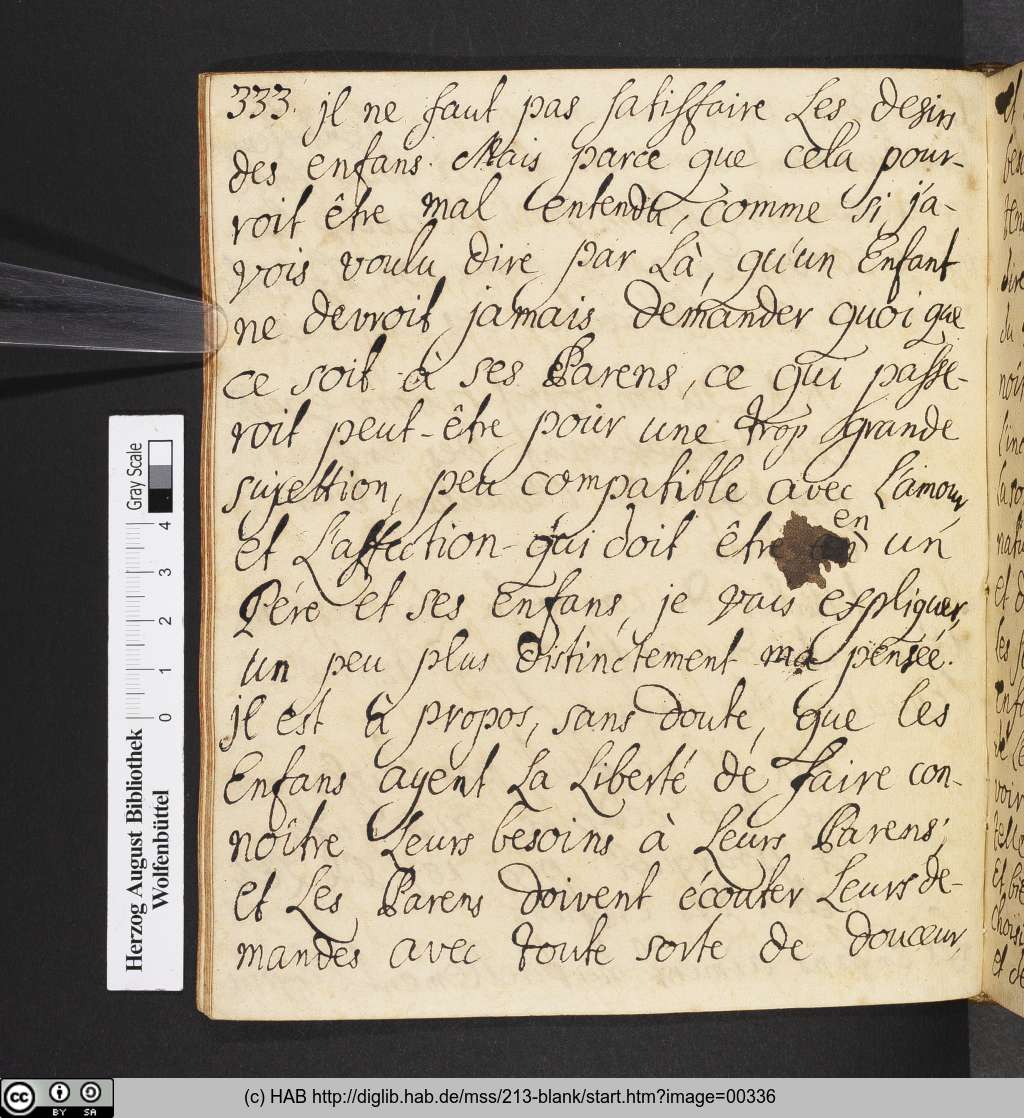 333. jl ne faut pas satisfaire Les desirs
des enfans. Mais parce que cela pour-
roit être mal entendu, comme si j'a-
vois voulu dire par Là, qu'un Enfant
ne devroit jamais demander quoi que
ce soit à ses Parens, ce qui passe-
roit peut-être pour une trop grande
sujettion, peu compatible avec L'amour,
et L'affection qui doit être en un
Pére et ses Enfans, je vais expliquer,
un peu plus distinctement ma pensée.
jl est à propos, sans doute, que les
Enfans ayent La Liberté de faire con-
noître Leurs besoins à Leurs Parens;
et Les Parens doivent écouter Leurs de-
mandes avec toute sorte de douceur,
Herzog August Bibliothek
Wolfenbüttel
0 1 2 3 4
Gray Scale
cc BY SA
(c) HAB http://diglib.hab.de/mss/213-blank/start.htm?image=00336